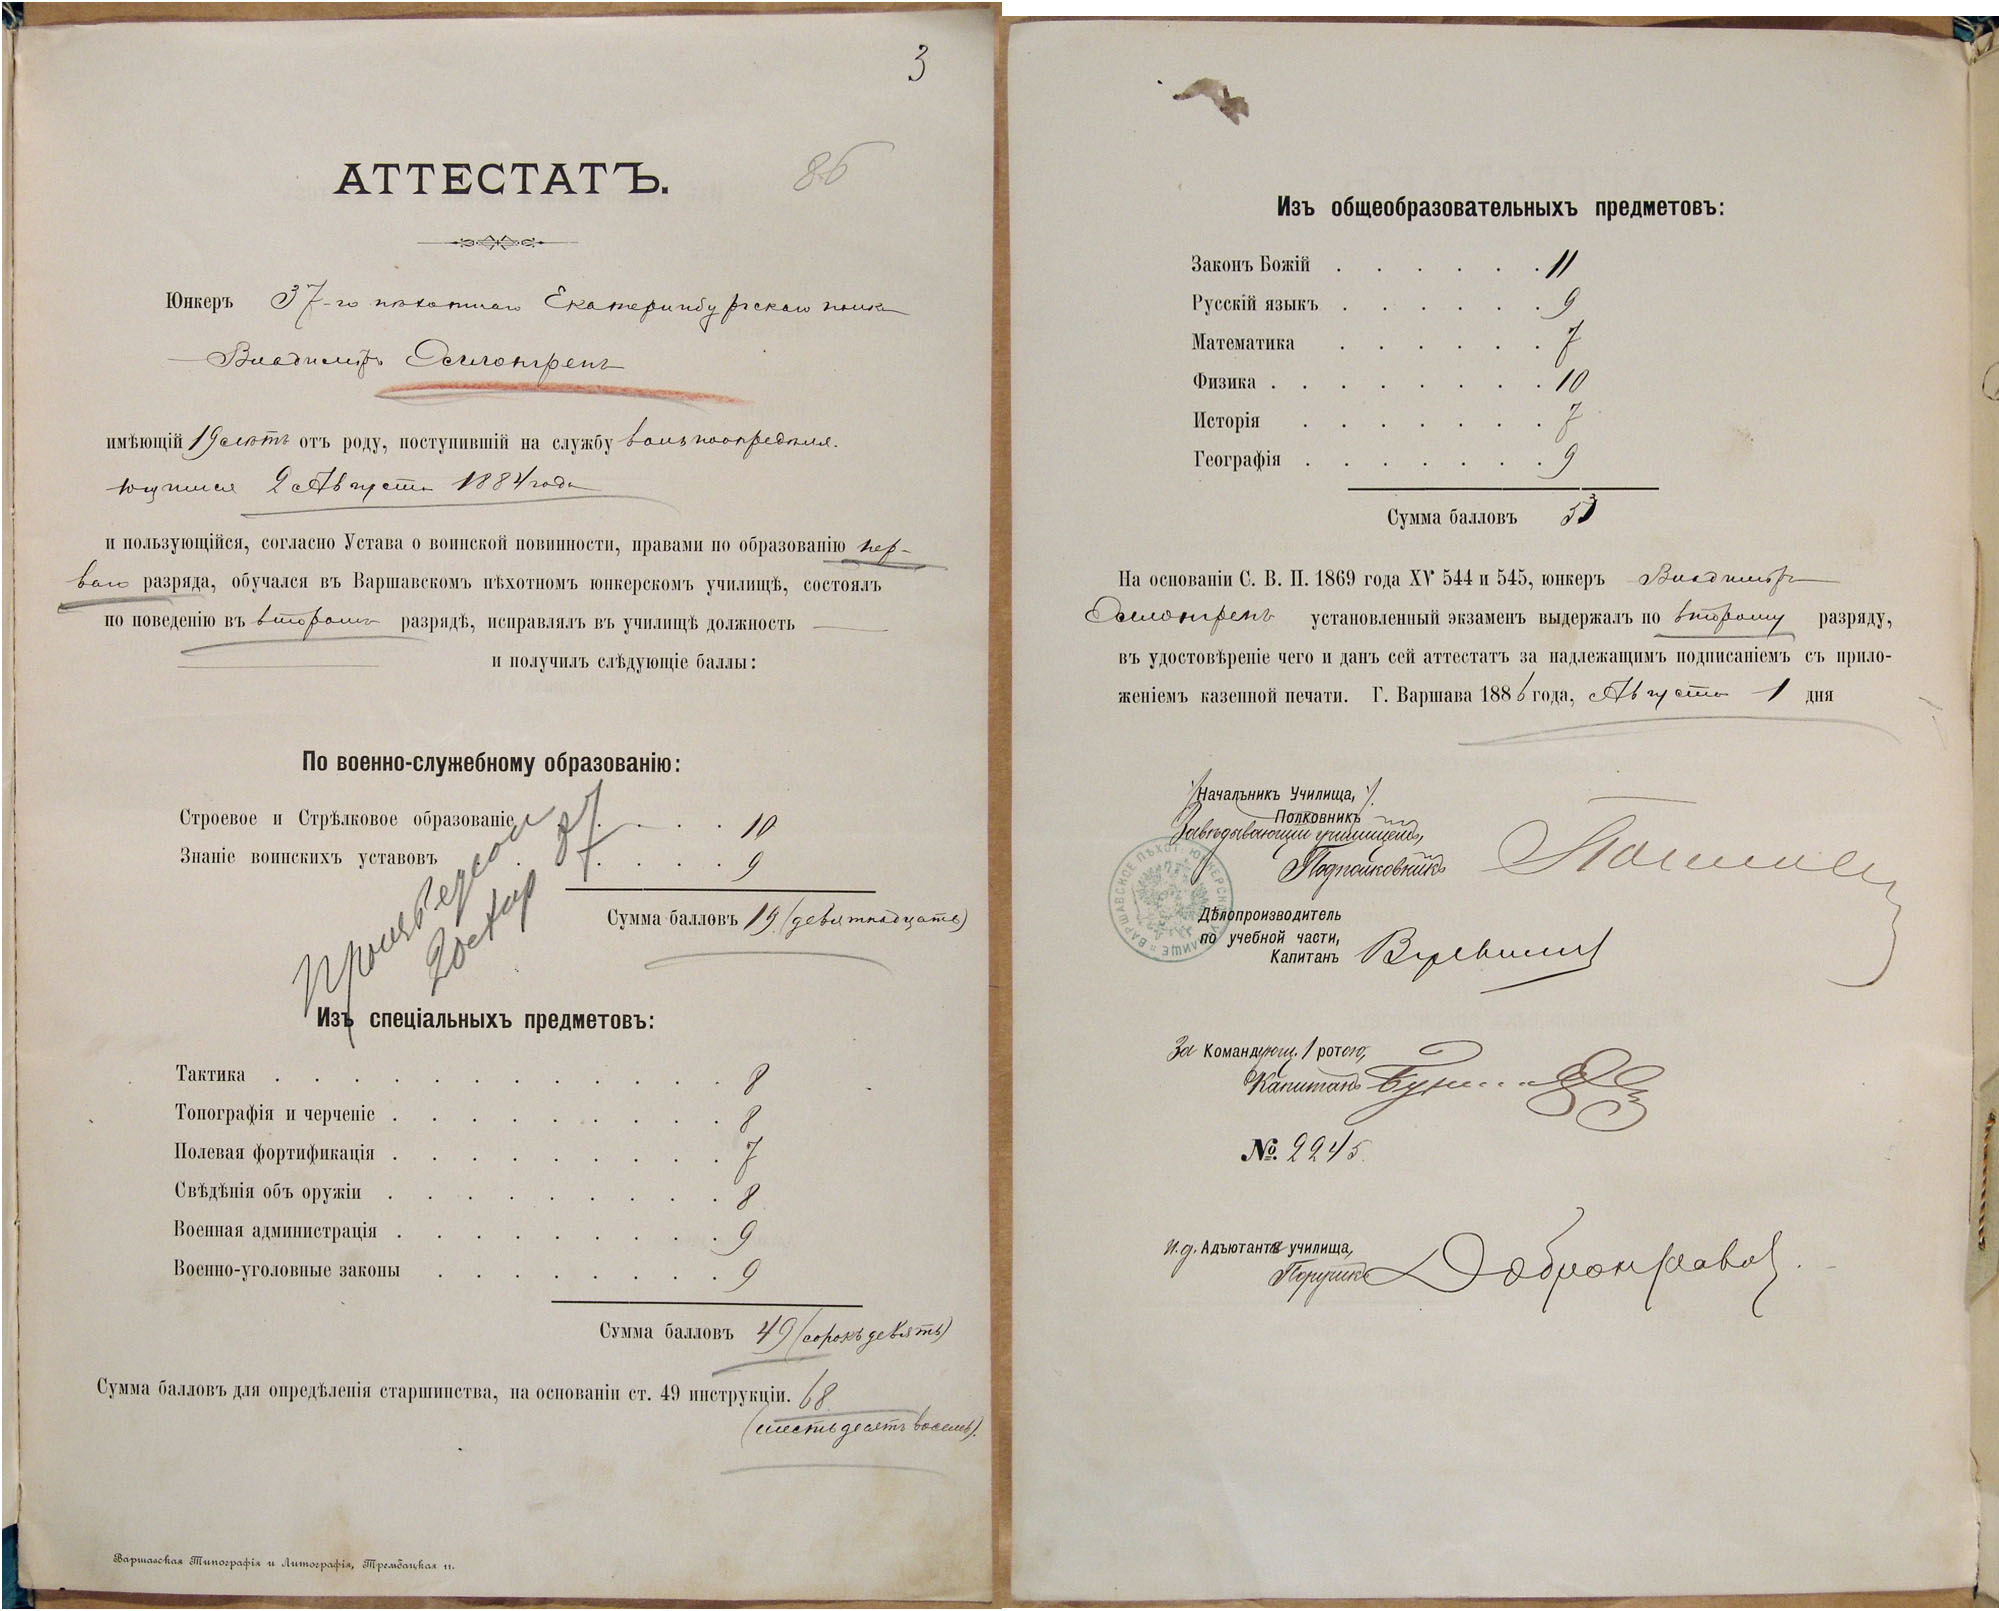 3
86
АТТЕСТАТЪ.
Юнкеръ 37-го пѣхотнаго Екатеринбургскаго полка
Владиміръ
имѣющій 19 лѣтъ отъ роду, поступившій на службу вольноопредѣля-
ющимся 2 Августа 1884 года
и пользующійся, согласно Устава о воинской повинности, правами по образованію пер-
ваго разряда, обучался въ Варшавскомъ пѣхотномъ юнкерскомъ училищѣ, состоялъ
по поведенію въ второмъ разрядѣ, исправлялъ въ училищѣ должность
и получилъ слѣдующіе баллы:
По военно-служебному образованію:
Строевое и Стрѣлковое образованіе . . . . 10
Знаніе воинскихъ уставовъ . . . . . 9
Сумма балловъ 19 (девятнадцать)
Изъ спеціальныхъ предметовъ:
Тактика . . . . . . . . . . . . 8
Топографія и черченіе . . . . . . . . . 8
Полевая фортификація . . . . . . . . . 7
Свѣдѣнія объ оружіи . . . . . . . . . 8
Военная администрація . . . . . . . . . 9
Военно-уголовные законы . . . . . . . . 9
Сумма балловъ 49 (сорокъ девять)
Сумма балловъ для опредѣленія старшинства, на основаніи ст. 49 инструкціи. 68
(шестьдесятъ восемь).
Варшавская Типографія и Литографія, Трембацкая 11.
Изъ общеобразовательныхъ предметовъ:
Законъ Божій . . . . . . 11
Русскій языкъ . . . . . . 9
Математика . . . . . . 7
Физика . . . . . . . . 10
Исторія . . . . . . . 7
Географія . . . . . . . 9
Сумма балловъ 53
На основаніи С. В. П. 1869 года XV 544 и 545, юнкеръ Владиміръ
установленный экзаменъ выдержалъ по второму разряду,
въ удостовѣреніе чего и данъ сей аттестатъ за надлежащимъ подписаніемъ съ прило-
женіемъ казенной печати. Г. Варшава 1886 года, Августа 1 дня
Начальникъ Училища,
Полковникъ
Завѣдывающій училищемъ,
Подполковникъ
ВАРШАВСКОЕ ПѢХОТ. ЮНКЕРСКОЕ УЧИЛИЩЕ
Дѣлопроизводитель
по учебной части,
Капитанъ
За Командующ. 1 ротою,
Капитанъ
№ 2245.
И. д. Адъютанта училища,
Поручикъ Добронравов